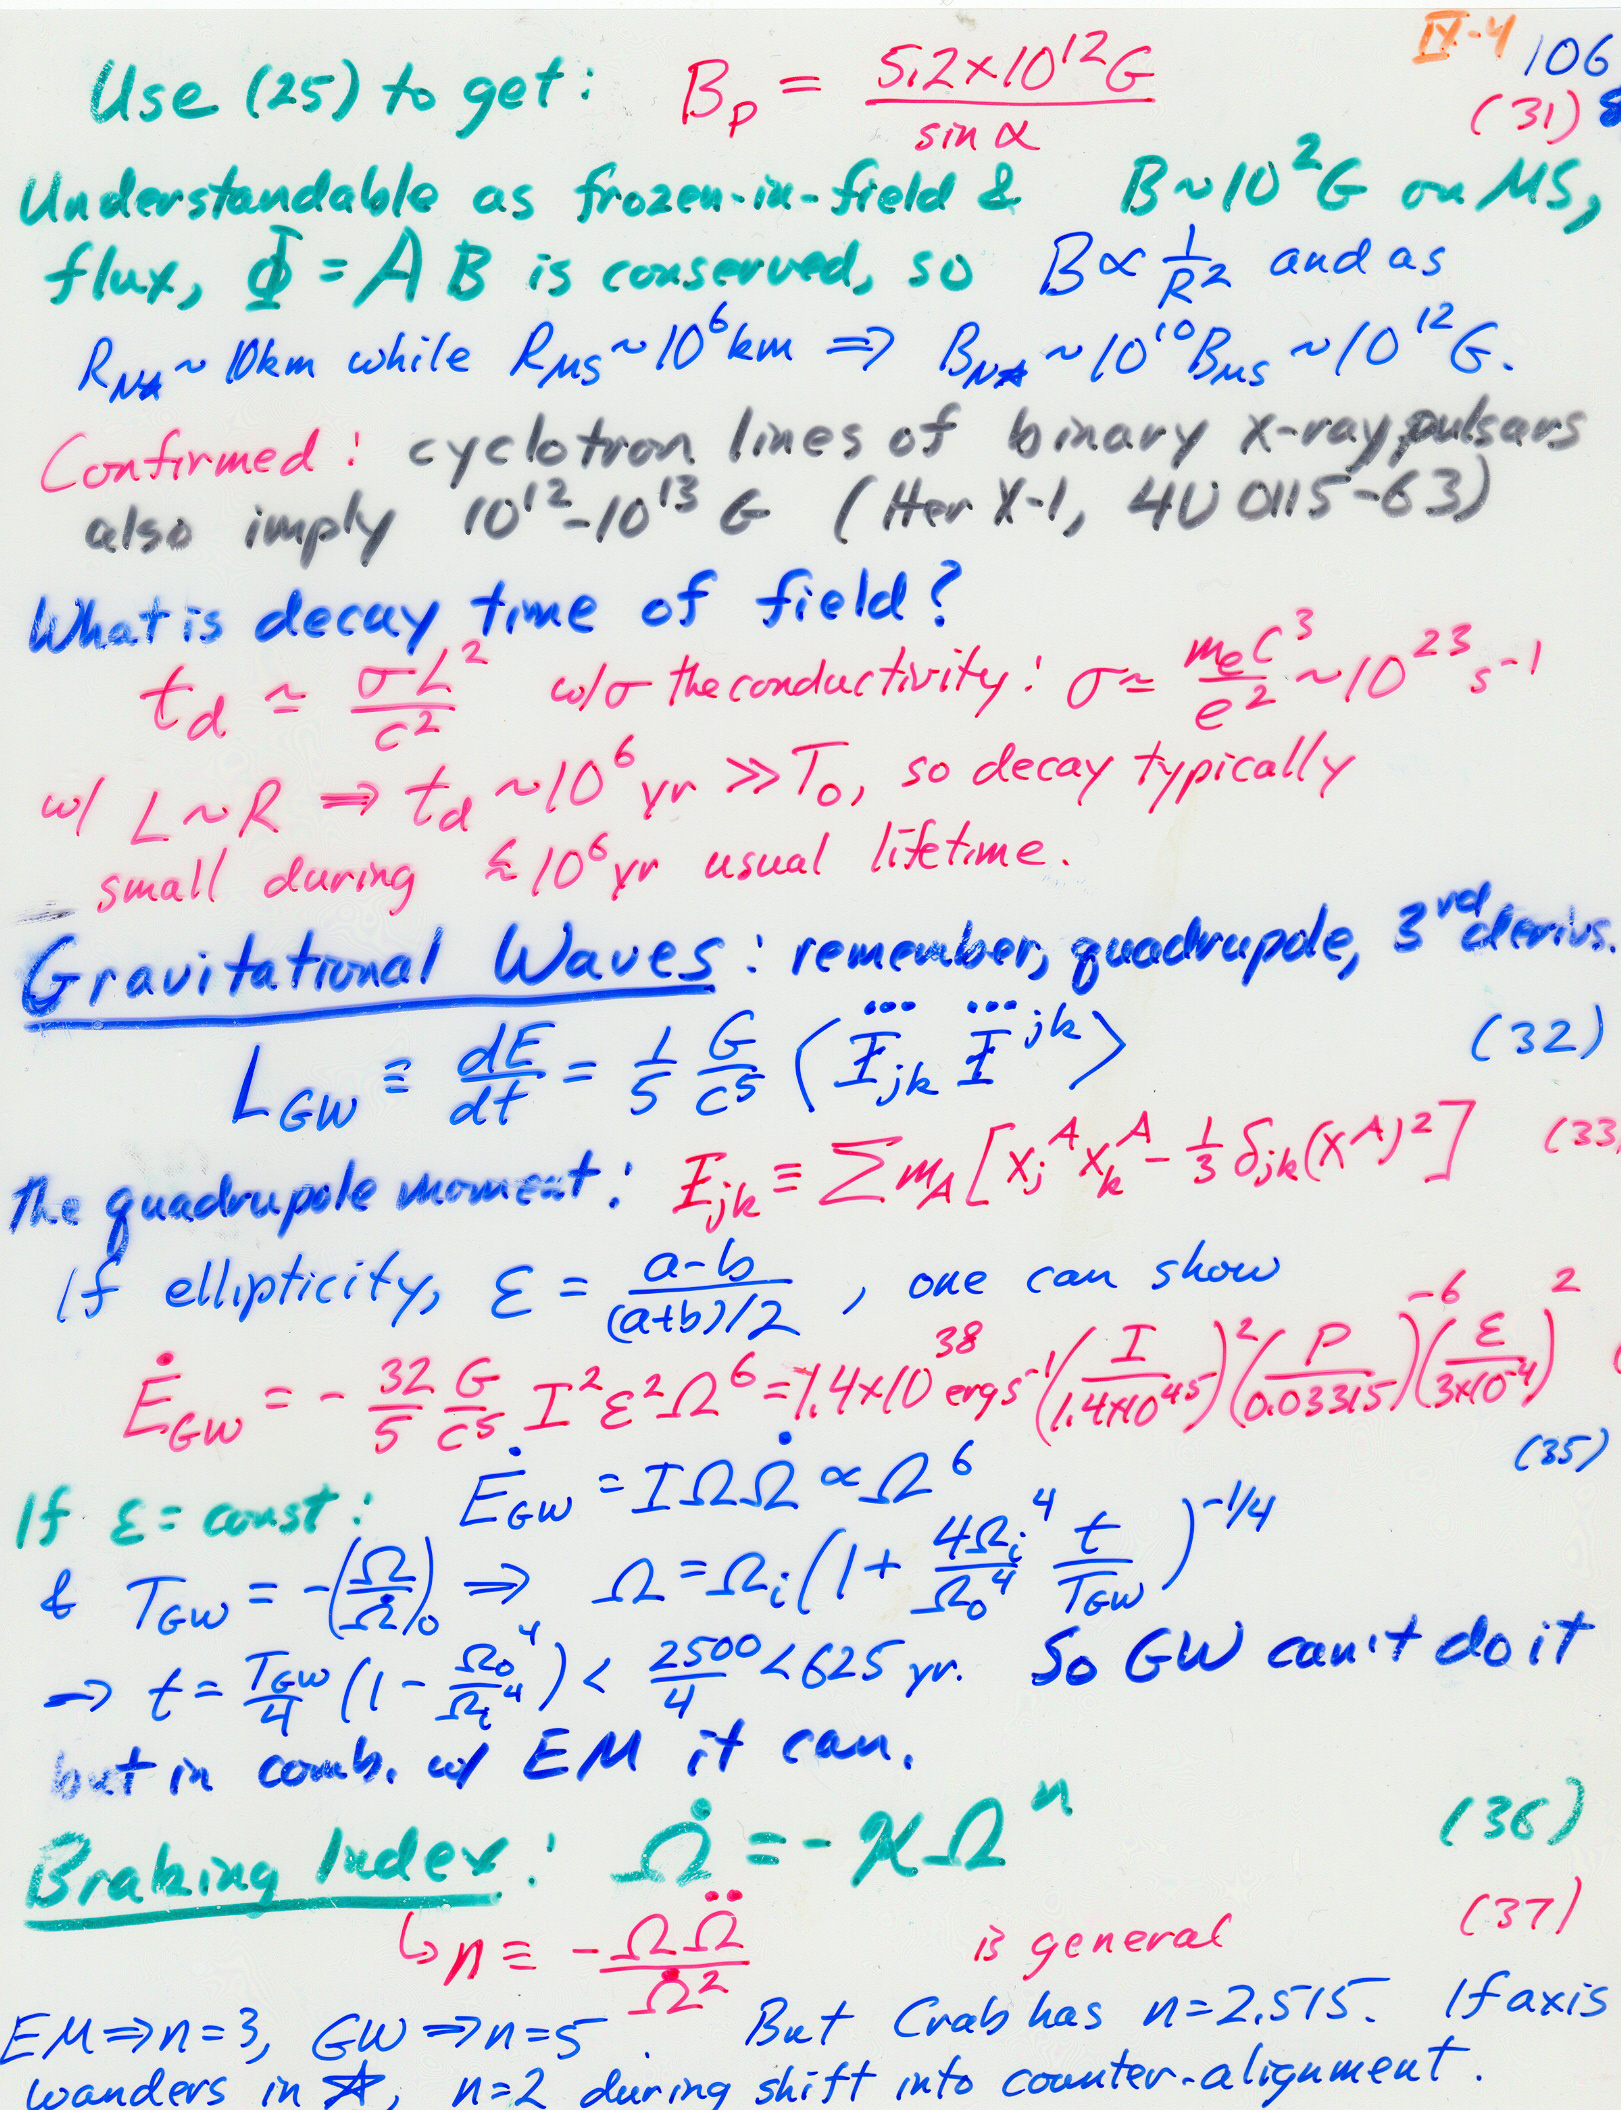 IX-4 106
Use (25) to get: B_p = 5.2×10^12 G / sin α (31)
Understandable as frozen-in-field & B~10^2 G on MS,
flux, Φ = A B is conserved, so B ∝ 1/R^2 and as
R_N☆ ~ 10km while R_MS ~ 10^6 km ⇒ B_N☆ ~ 10^10 B_MS ~ 10^12 G.
Confirmed: cyclotron lines of binary X-ray pulsars
also imply 10^12-10^13 G (Her X-1, 4U 0115-63)
What is decay time of field?
t_d ≃ σL^2/c^2 w/σ the conductivity: σ ≃ m_e c^3/e^2 ~ 10^23 s^-1
w/ L~R ⇒ t_d ~ 10^6 yr >> T_0, so decay typically
small during ≲ 10^6 yr usual lifetime.
Gravitational Waves: remember, quadrupole, 3rd derivs.
L_GW ≡ dE/dt = 1/5 G/c^5 ⟨I⃛_jk I⃛^jk⟩ (32)
The quadrupole moment: I_jk ≡ Σ m_A [x_j^A x_k^A - 1/3 δ_jk (x^A)^2] (33)
If ellipticity, ε = (a-b)/((a+b)/2), one can show
Ė_GW = - 32/5 G/c^5 I^2 ε^2 Ω^6 = 1.4×10^38 erg s^-1 (I/1.4×10^45)^2 (P/0.0331s)^-6 (ε/3×10^-4)^2 (
If ε = const: Ė_GW = I Ω Ω̇ ∝ Ω^6 (35)
& T_GW = -(Ω/Ω̇)_0 ⇒ Ω = Ω_i (1 + 4Ω_i^4/Ω_0^4 t/T_GW)^-1/4
⇒ t = T_GW/4 (1 - Ω_0^4/Ω_i^4) < 2500/4 < 625 yr. So GW can't do it
but in comb. w/ EM it can.
Braking Index: Ω̇ = - K Ω^n (36)
↳ n ≡ - ΩΩ̈/Ω̇^2 is general (37)
EM ⇒ n=3, GW ⇒ n=5. But Crab has n=2.515. If axis
wanders in ☆, n=2 during shift into counter-alignment.